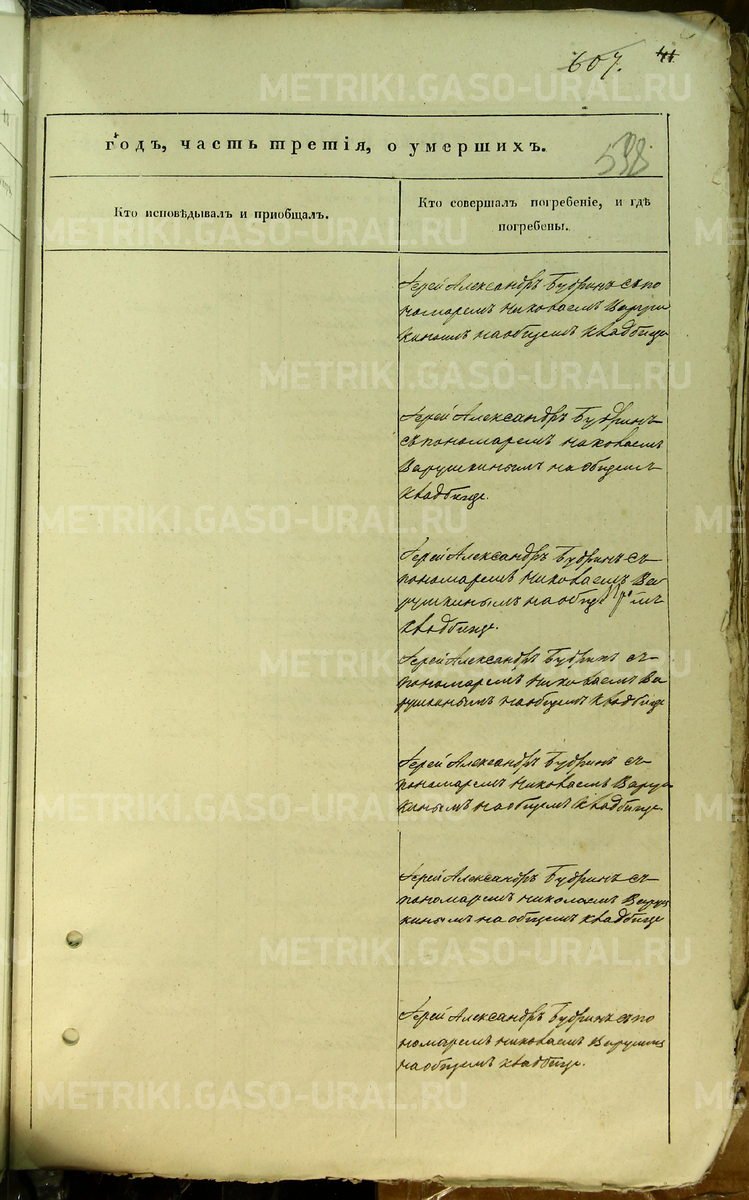 607. 41
METRIKI.GASO-URAL.RU
годъ, часть третія, о умершихъ.
538
Кто исповѣдывалъ и пріобщалъ.
Кто совершалъ погребеніе, и гдѣ
погребены.
Іерей Александръ Будринъ съ по
номаремъ Николаемъ Варуш
кинымъ на общемъ кладбище
Іерей Александръ Будринъ
съ пономаремъ Николаемъ
Варушкинымъ на общемъ
кладбище.
Іерей Александръ Будринъ съ
пономаремъ Николаемъ Ва
рушкинымъ на
кладбище.
Іерей Александръ Будринъ съ
пономаремъ Николаемъ Ва
рушкинымъ на общемъ кладбище
Іерей Александръ Будринъ съ
пономаремъ Николаемъ Варуш
кинымъ на общемъ кладбище
Іерей Александръ Будринъ съ
пономаремъ Николаемъ Варуш
кинымъ на общемъ кладбище
Іерей Александръ Будринъ съ по
номаремъ Николаемъ
на общемъ кладбище.